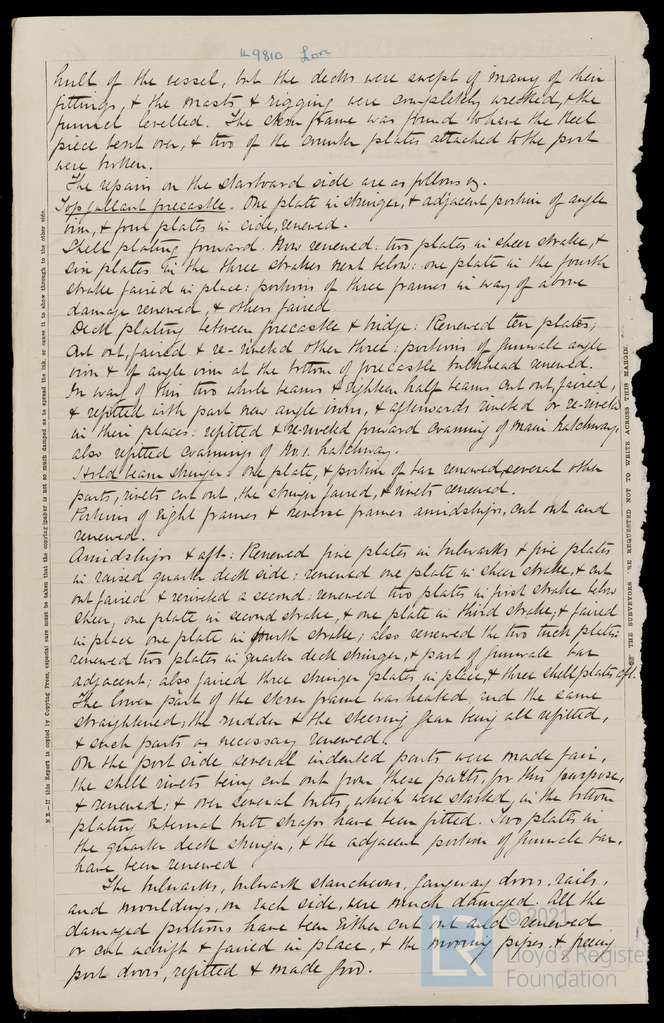 49810 Lon
hull of the vessel, but the decks were swept of many of their
fittings, & the masts & rigging were completely wrecked, & the
funnel levelled. The stern frame was found to have the heel
piece bent over, & two of the counter plates attached to the post
were broken.
The repairs on the starboard side are as follows vz.
Topgallant forecastle. One plate in stringer, & adjacent portion of angle
iron, & four plates in side, renewed.
Shell plating forward. Now renewed: two plates in sheer strake, &
six plates in the three strakes next below: one plate in the fourth
strake faired in place: portions of three frames in way of above
damage renewed, & others faired
Deck plating between forecastle & bridge: Renewed ten plates,
cut out, faired & re-riveted other three: portions of gunwale angle
iron & of angle iron at the bottom of forecastle bulkhead renewed.
In way of this two whole beams & eighteen half beams cut out, faired,
& refitted with part new angle irons, & afterwards riveted or re-riveted
in their places: refitted & re-riveted forward coaming of main hatchway,
also refitted coamings of No 1. hatchway.
Hold beam stringer: one plate, & portion of bar renewed, several other
parts, rivets cut out, the stringer faired, & rivets renewed.
Portions of eight frames & reverse frames amidships, cut out and
renewed.
Amidships & aft: Renewed five plates in bulwarks & five plates
in raised quarter deck side: renewed one plate in sheer strake, & cut
out faired & reriveted a second: renewed two plates in first strake below
sheer, one plate in second strake, & one plate in third strake, & faired
in place one plate in fourth strake; also renewed the two tuck plates:
renewed two plates in quarter deck stringer, & part of gunwale bar
adjacent; also faired three stringer plates in place, & three shell plates aft.
The lower part of the stern frame was heated, and the same
straightened, the rudder & the steering gear being all refitted,
& such parts as necessary renewed.
On the port side several indented parts were made fair,
the shell rivets being cut out from these parts, for this purpose,
& renewed; & over several butts, which were started, in the bottom
plating external butt straps have been fitted. Two plates in
the quarter deck stringer, & the adjacent portion of gunwale bar,
have been renewed
The bulwarks, bulwark stancheons, gangway doors, rails,
and mouldings, on each side, were much damaged. All the
damaged portions have been either cut out and renewed
or cut adrift & faired in place, & the mooring pipes, & freeing
port doors, refitted & made good.
N.B.—If this Report is copied by Copying Press, especial care must be taken that the copying paper is not so much damped as to spread the ink, or cause it to show through to the other side.
THE SURVEYORS RE REQUESTED NOT TO WRITE ACROSS THIS MARGIN.
LR
© 2021
Lloyd's Register
Foundation